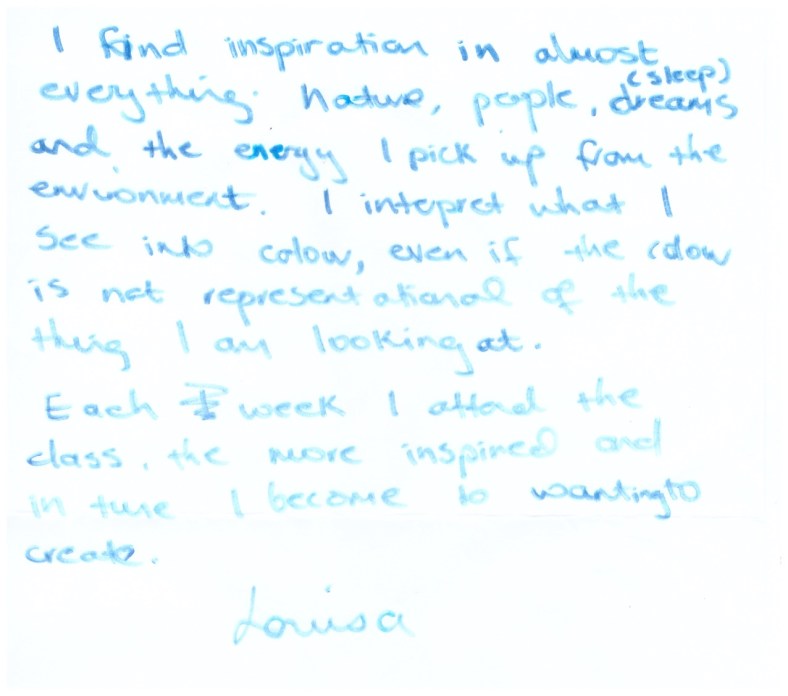 I find inspiration in almost
everything. Nature, people, (sleep) dreams
and the energy I pick up from the
environment. I intepret what I
see into colour, even if the colour
is not representational of the
thing I am looking at.
Each week I attend the
class, the more inspired and
in tune I become to wanting to
create.
Louisa